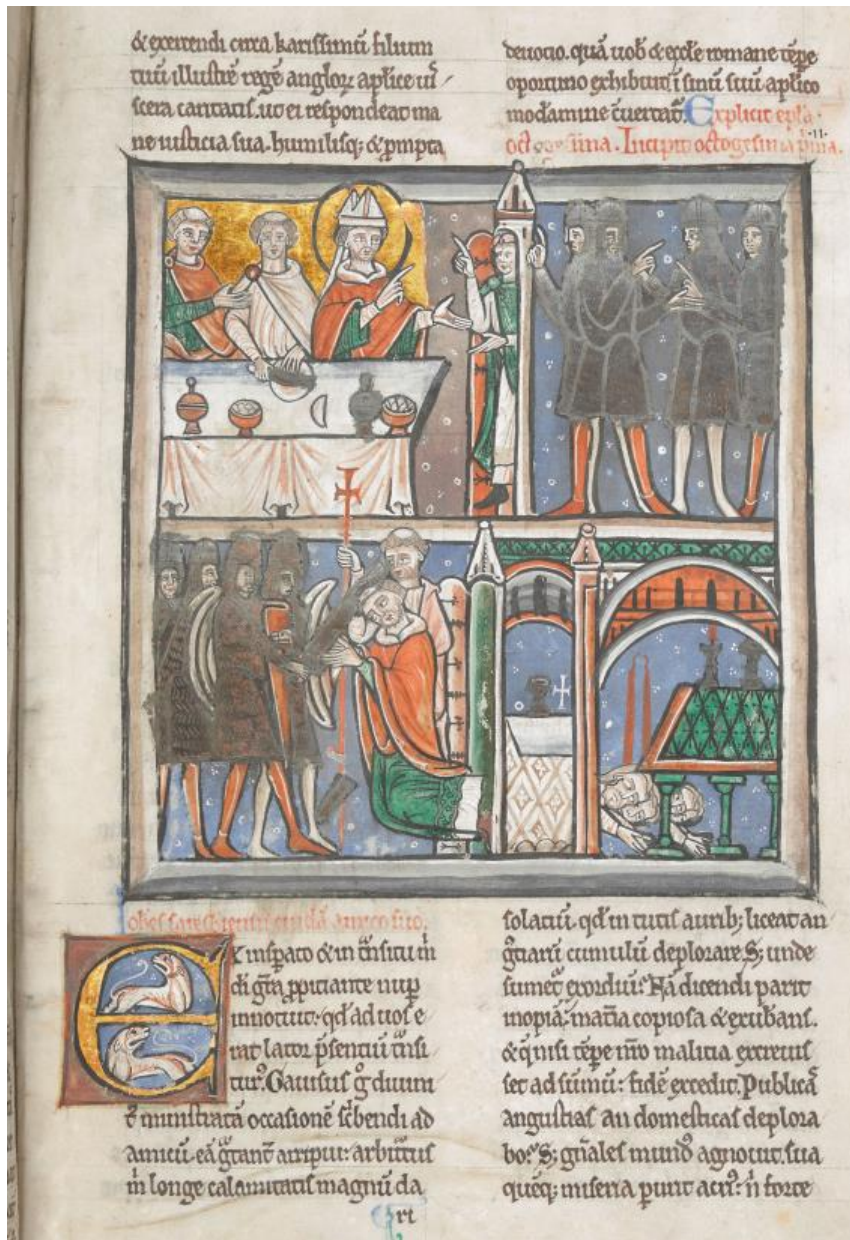 & exercendi circa karissimū filium
tuū illustrē regē anglorꝝ aplice uı̄
scera caritatis. ut ei respondeat ma
ne iusticia sua. humilisq; & p̄mpta
deuotio. quā uob & eccłe romane tēpe
oportuno exhibuit ī sinū suū aplico
modamine cūertat̄. Explicit epła
Incipit octogesima p̄ma.
.II.
amico suo.
Ex insp̄ato & in t̄nsitu m̄
di gr̄a ppitiante nup
innotuit. qd ad uos e
rat lator p̄sentiū t̄nsi
turꝰ. Gauisus g̊ diuini
t̄ ministratā occasionē sc̄bendi ad
amicū. eā gͣtant̄ arripui. arbitͣtus
m̄ longe calamitatis magnū da
ri
solatiū. qd in tutis aurib; liceat an
gͣtiarū cumulū deplorare. S; unde
sumet̄ exordiū? Nā dicendi parit
inopiā. mat̄ia copiosa & exubans.
& quisi tēpe nr̄o malitia excreuit
set ad sūmū. fidē excedit. Publicā
angustias an domesticas deplora
bo? S; gn̄ales mundꝰ agnouit. sua
quēq; miseria punit acriꝰ. n̄ forte